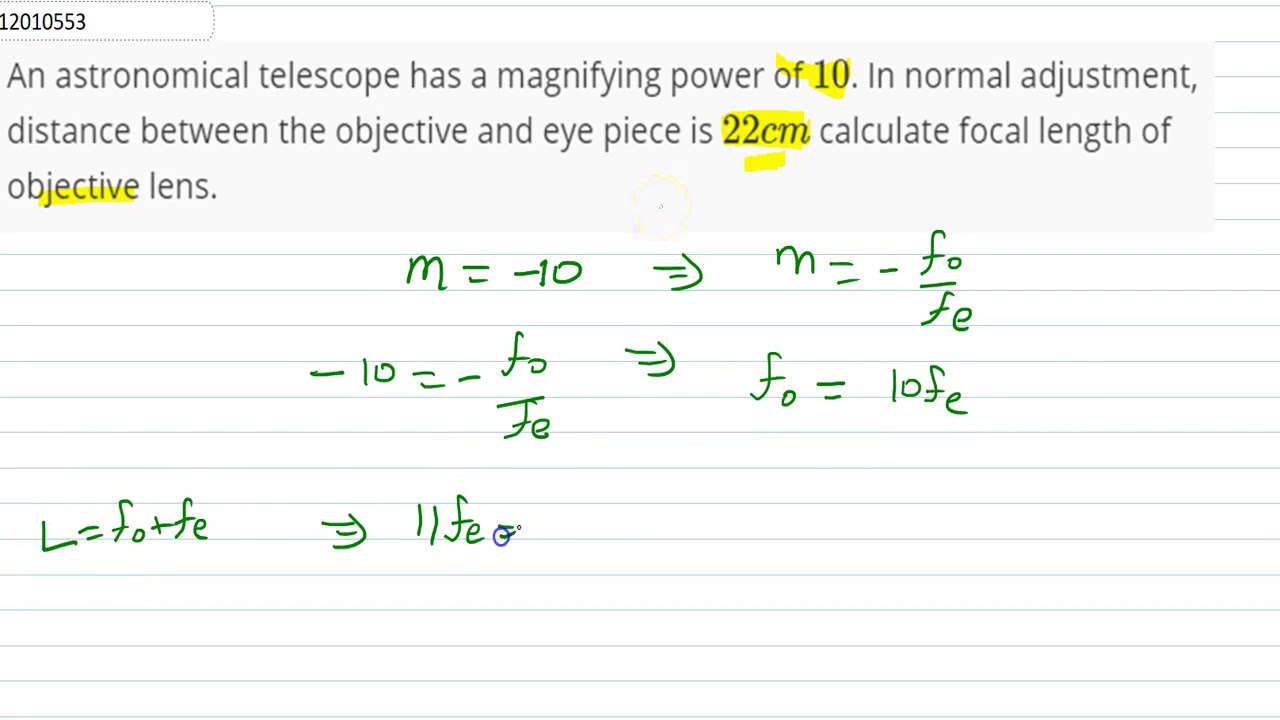 12010553
An astronomical telescope has a magnifying power of 10. In normal adjustment,
distance between the objective and eye piece is 22cm calculate focal length of
objective lens.
m = -10 ⇒ m = - fo/fe
-10 = - fo/fe ⇒ fo = 10fe
L = fo+fe ⇒ 11fe =